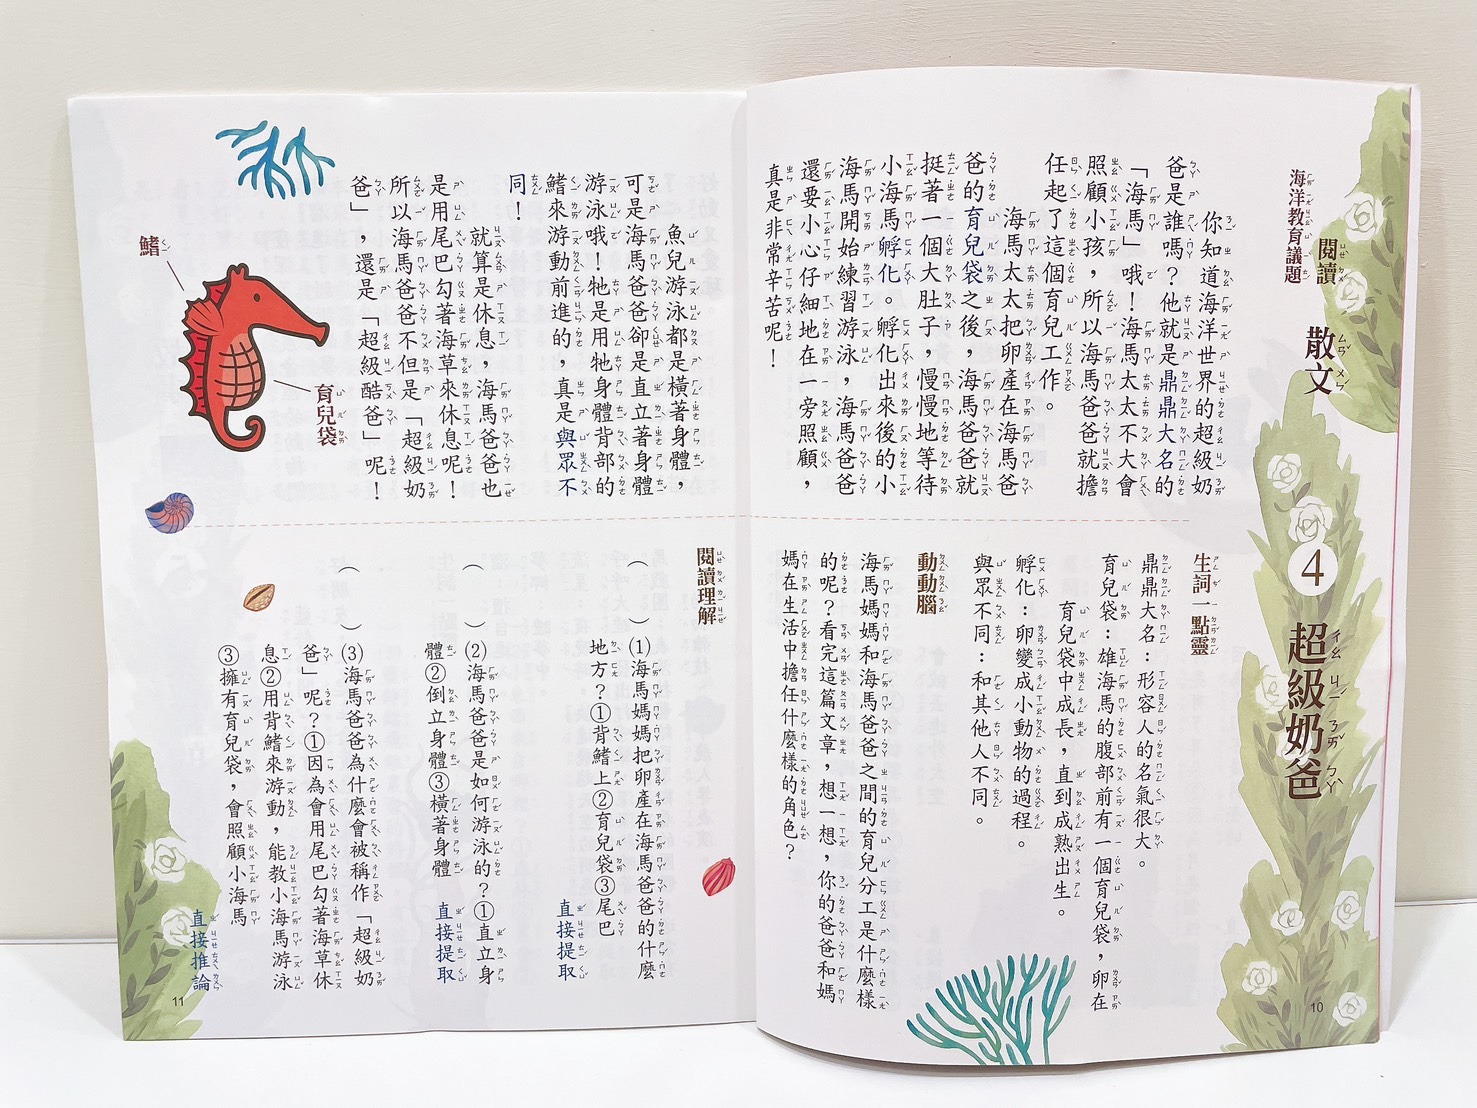 海洋教育議題
閱讀 散文
4 超級奶爸
你知道海洋世界的超級奶
爸是誰嗎？他就是鼎鼎大名的
「海馬」哦！海馬太太不大會
照顧小孩，所以海馬爸爸就擔
任起了這個育兒工作。
海馬太太把卵產在海馬爸
爸的育兒袋之後，海馬爸爸就
挺著一個大肚子，慢慢地等待
小海馬孵化。孵化出來後的小
海馬開始練習游泳，海馬爸爸
還要小心仔細地在一旁照顧，
真是非常辛苦呢！
生詞一點靈
鼎鼎大名：形容人的名氣很大。
育兒袋：雄海馬的腹部前有一個育兒袋，卵在
育兒袋中成長，直到成熟出生。
孵化：卵變成小動物的過程。
與眾不同：和其他人不同。
動動腦
海馬媽媽和海馬爸爸之間的育兒分工是什麼樣
的呢？看完這篇文章，想一想，你的爸爸和媽
媽在生活中擔任什麼樣的角色？
10
魚兒游泳都是橫著身體，
可是海馬爸爸卻是直立著身體
游泳哦！牠是用牠身體背部的
鰭來游動前進的，真是與眾不
同！
就算是休息，海馬爸爸也
是用尾巴勾著海草來休息呢！
所以海馬爸爸不但是「超級奶
爸」，還是「超級酷爸」呢！
鰭
育兒袋
閱讀理解
（　）⑴海馬媽媽把卵產在海馬爸爸的什麼
地方？①背鰭上②育兒袋③尾巴
直接提取
（　）⑵海馬爸爸是如何游泳的？①直立身
體②倒立身體③橫著身體
直接提取
（　）⑶海馬爸爸為什麼會被稱作「超級奶
爸」呢？①因為會用尾巴勾著海草休
息②用背鰭來游動，能教小海馬游泳
③擁有育兒袋，會照顧小海馬
直接推論
11